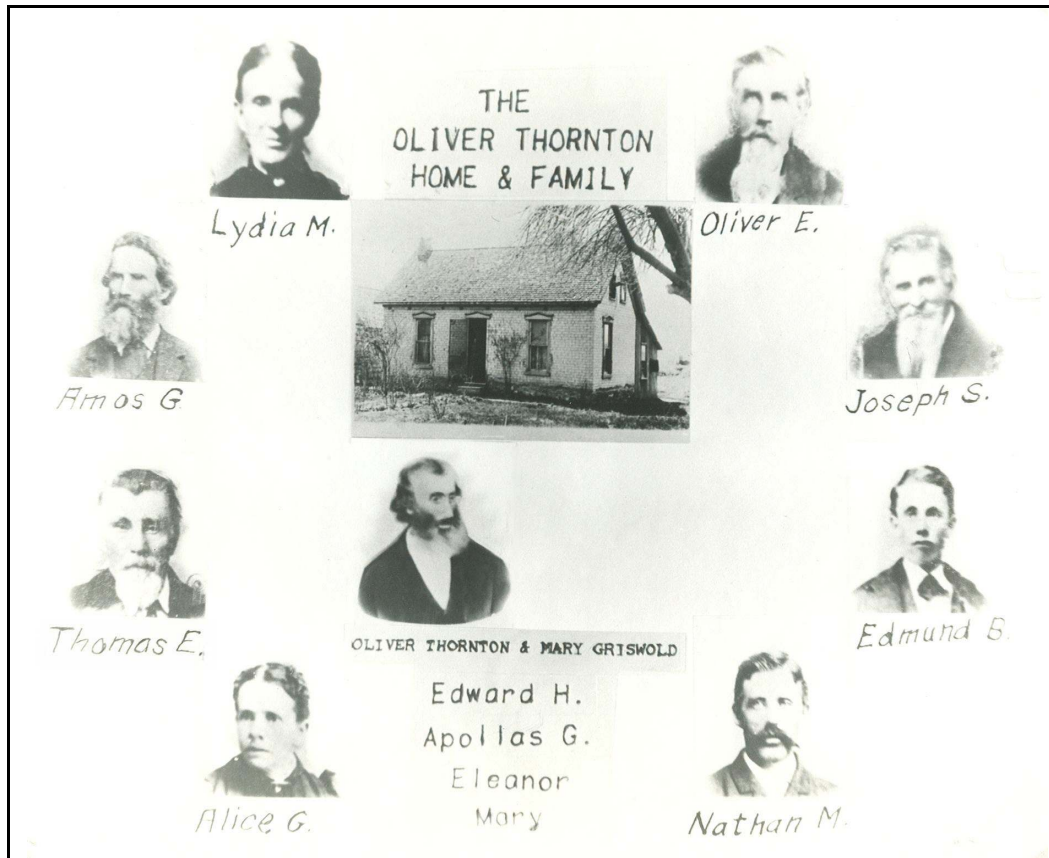 THE
OLIVER THORNTON
HOME & FAMILY
Lydia M.
Oliver E.
Amos G
Joseph S.
Thomas E.
Edmund B.
OLIVER THORNTON & MARY GRISWOLD
Edward H.
Apollas G.
Eleanor
Mary
Alice G.
Nathan M.